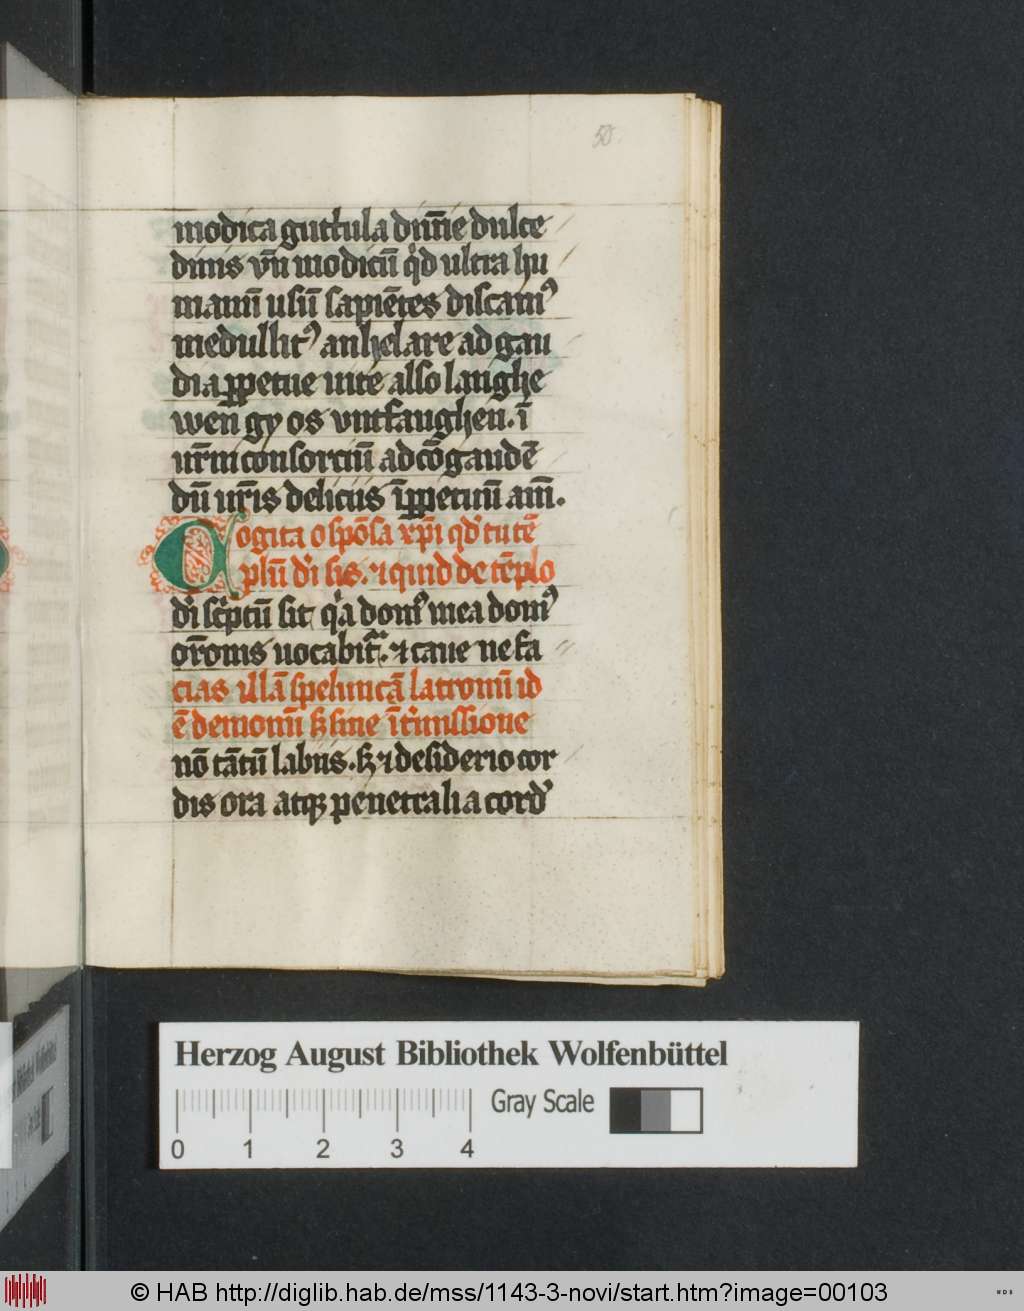 50.
modica guttula diuīe dulce
dinis vn̄ modicū qͥd ultra hu
manū usū sapiētes discamꝰ
medullitꝰ anhelare ad gau
dia ꝑpetue uite also langhe
wen̄ gy os vntfanghen. ī
ur̄m consorciū ad cōgaudē
dū ur̄is deliciis īꝑpetuū am̄.
Cogita o spōsa xp̄i qd̓ tu tē
plū dī sis. ⁊ quid de tēplo
dī sc̓ptū sit qͥa domꝰ mea domꝰ
or̄onis uocabit᷑. ⁊ caue ne fa
cias illā speluncā latronū id
ē demonū sꝫ sine īt̓missione
nō tātū labiis. sꝫ ⁊ desiderio cor
dis ora atqꝫ penetralia cord̓
Herzog August Bibliothek Wolfenbüttel
Gray Scale
0 1 2 3 4
© HAB http://diglib.hab.de/mss/1143-3-novi/start.htm?image=00103